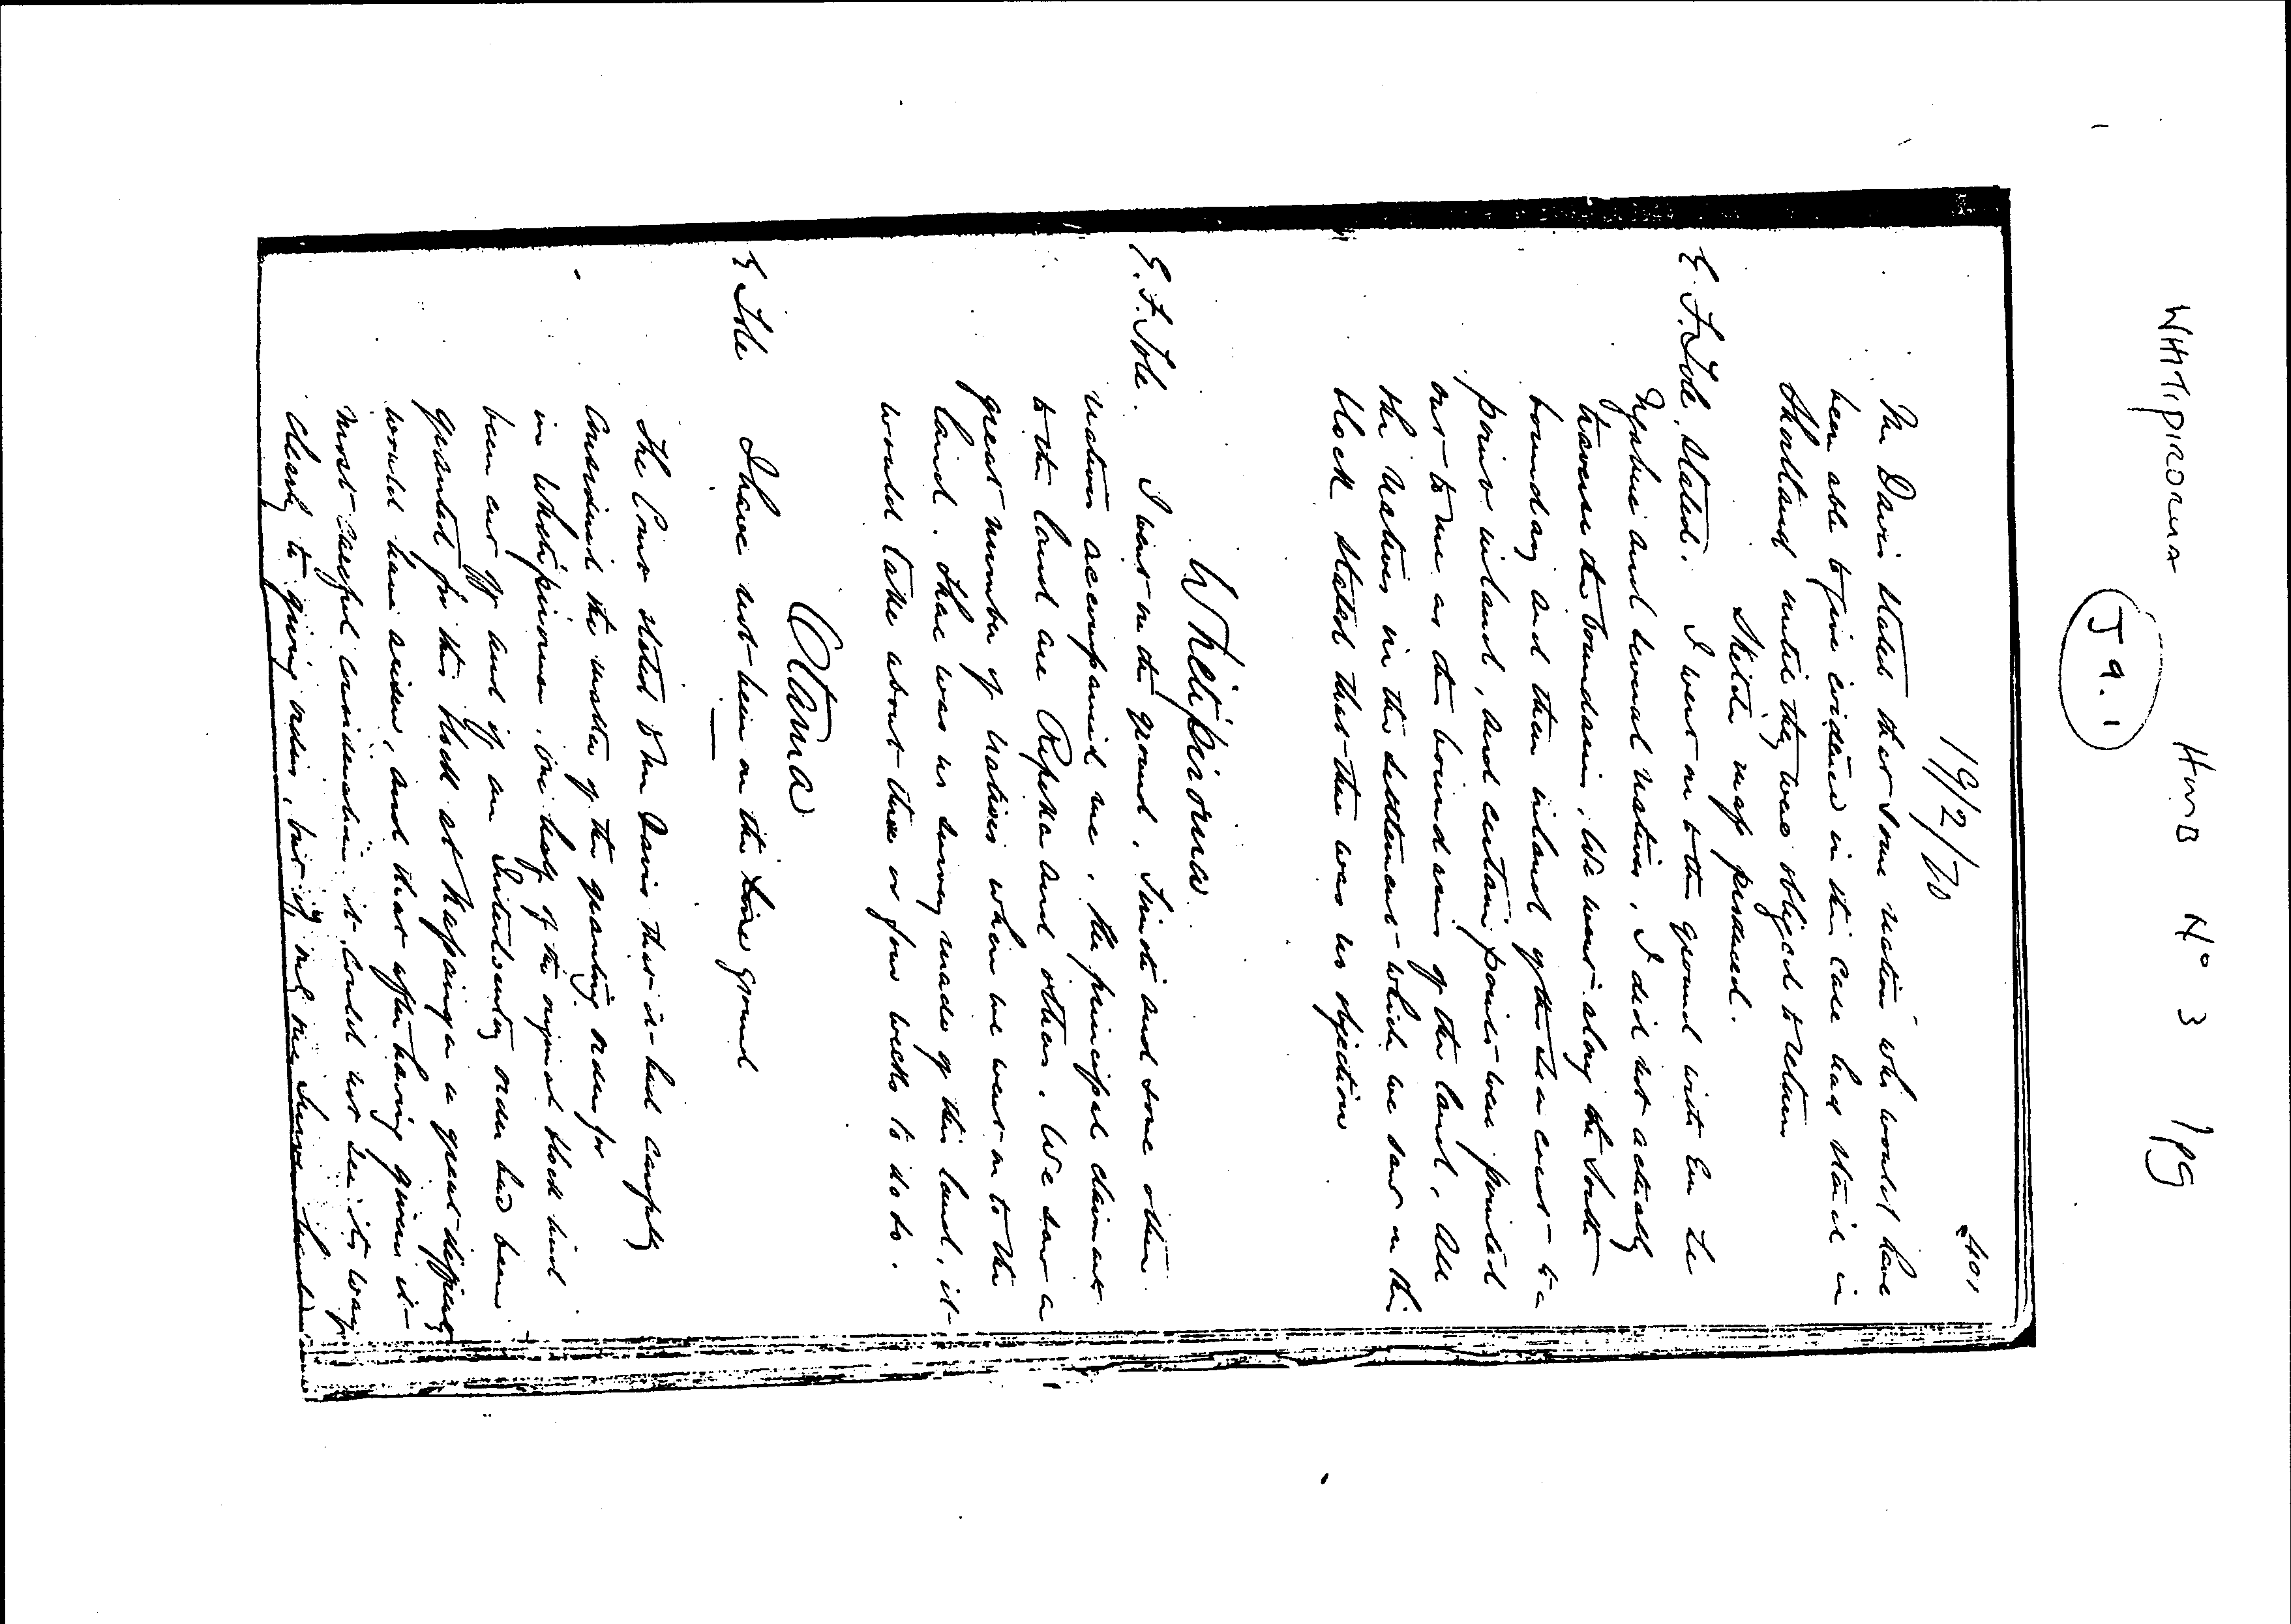 WHITIPIROUA HMB Nº 3 1pg
J9.1
401
19/2/70
Mr Davis stated that some natives who would have
been able to give evidence in this case had stayed in
Shortland until they were obliged to return
Sketch map produced.
G. F. Tole, stated. I went on to the ground with
and several natives, I did not actually
traverse the boundaries, We went along the South
boundary and then inland of the sea coast to a
point inland, and certain points were pointed
out to me as the boundaries of the land, All
the natives in the settlement which we saw on the
block stated that there was no objection
Whitipirorua
G. F. Tole. I was on the ground, and some other
natives accompanied me, the principal claimants
to the land are Ripeka and others. We saw a
great number of natives when we went on to the
land. There was no survey made of this land, it
would take about three or four weeks to do so.
Otama
G Tole I have not been on the line ground
The Court stated to Mr Davis that it had carefully
considered the matter of the granting orders for
in Whitipirorua, one half of the original block had
been cut off and if an Interlocutory order had been
granted for this block at a great difficulty
would have arisen, and that after having given it
most careful consideration it could not see its way
clearly to giving orders, but if